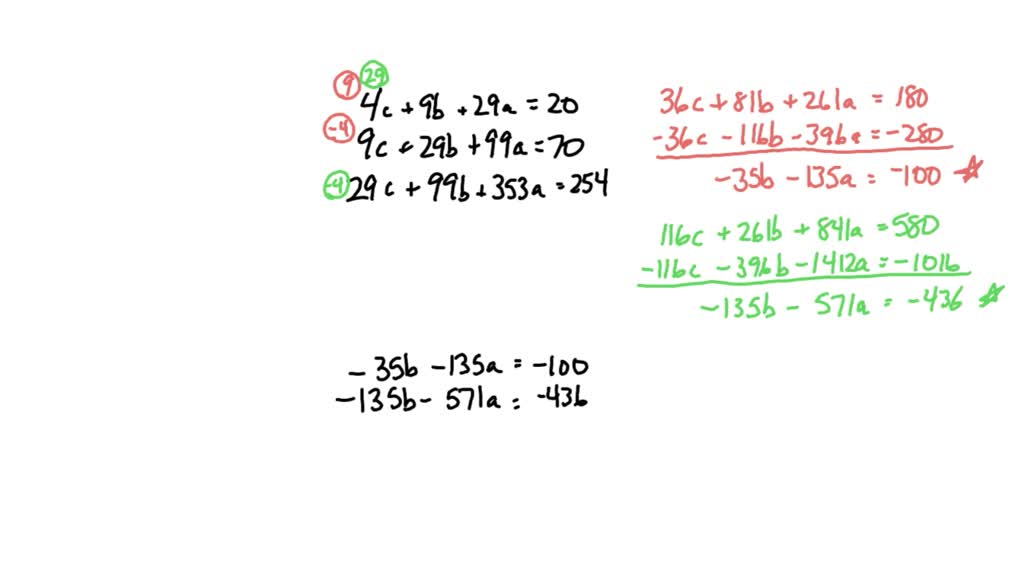 9 29
4c + 9b + 29a = 20
-4 9c + 29b + 99a = 70
-4 29c + 99b + 353a = 254
36c + 81b + 261a = 180
-36c - 116b - 396a = -280
-35b - 135a = -100 ☆
116c + 261b + 841a = 580
-116c - 396b - 1412a = -1016
-135b - 571a = -436 ☆
- 35b - 135a = -100
-135b - 571a = -436